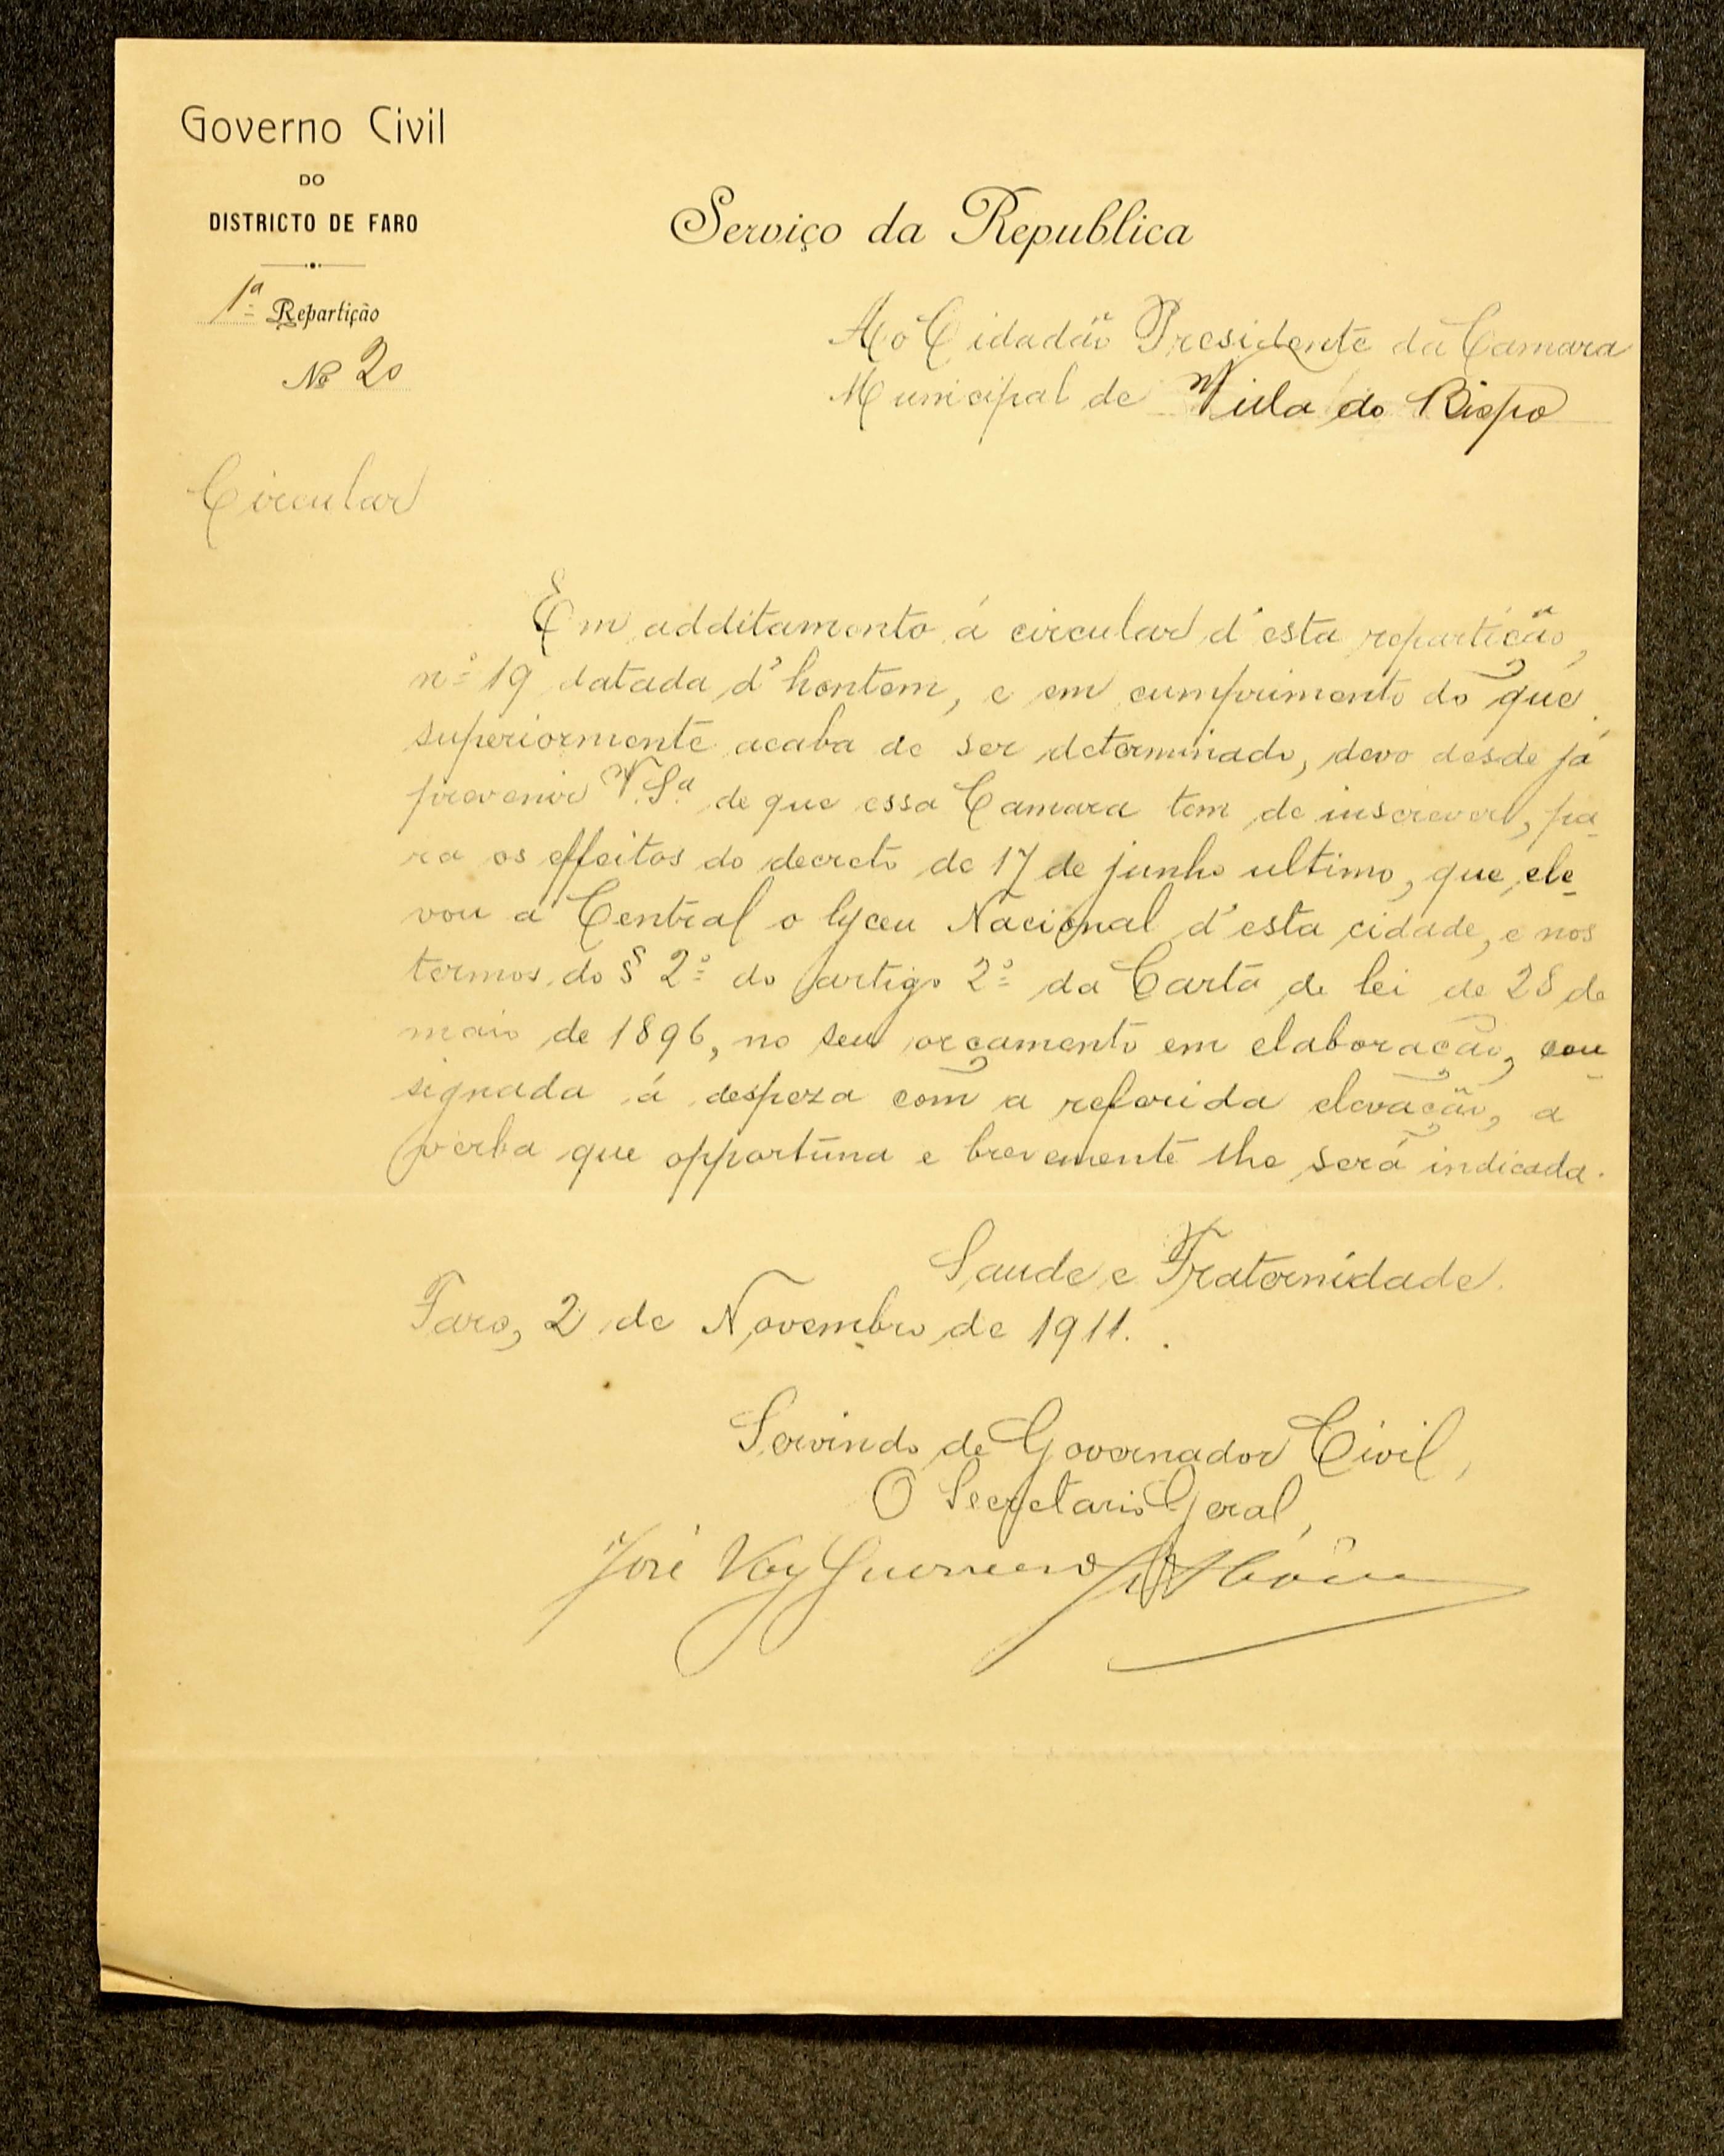 Governo Civil
DO
DISTRICTO DE FARO
1ª Repartição
Nº 20
Serviço da Republica
Ao Cidadão Presidente da Camara
Municipal de Villa do Bispo
Circular
Em additamento á circular d'esta repartição,
nº 19 datada d'hontem, e em cumprimento do que
superiormente acaba de ser determinado, devo desde já
prevenir V. Sª de que essa Camara tem de inscrever, pa-
ra os effeitos do decreto de 17 de junho ultimo, que ele-
vou a Central o lyceu Nacional d'esta cidade, e nos
termos do § 2º do artigo 2º da Carta de lei de 28 de
maio de 1896, no seu orçamento em elaboração, con-
signada á despeza com a referida elevação, a
verba que opportuna e brevemente lhe será indicada.
Saude e Fraternidade.
Faro, 2 de Novembro de 1911.
Servindo de Governador Civil,
O Secretario Geral,
José Vaz Guerreiro